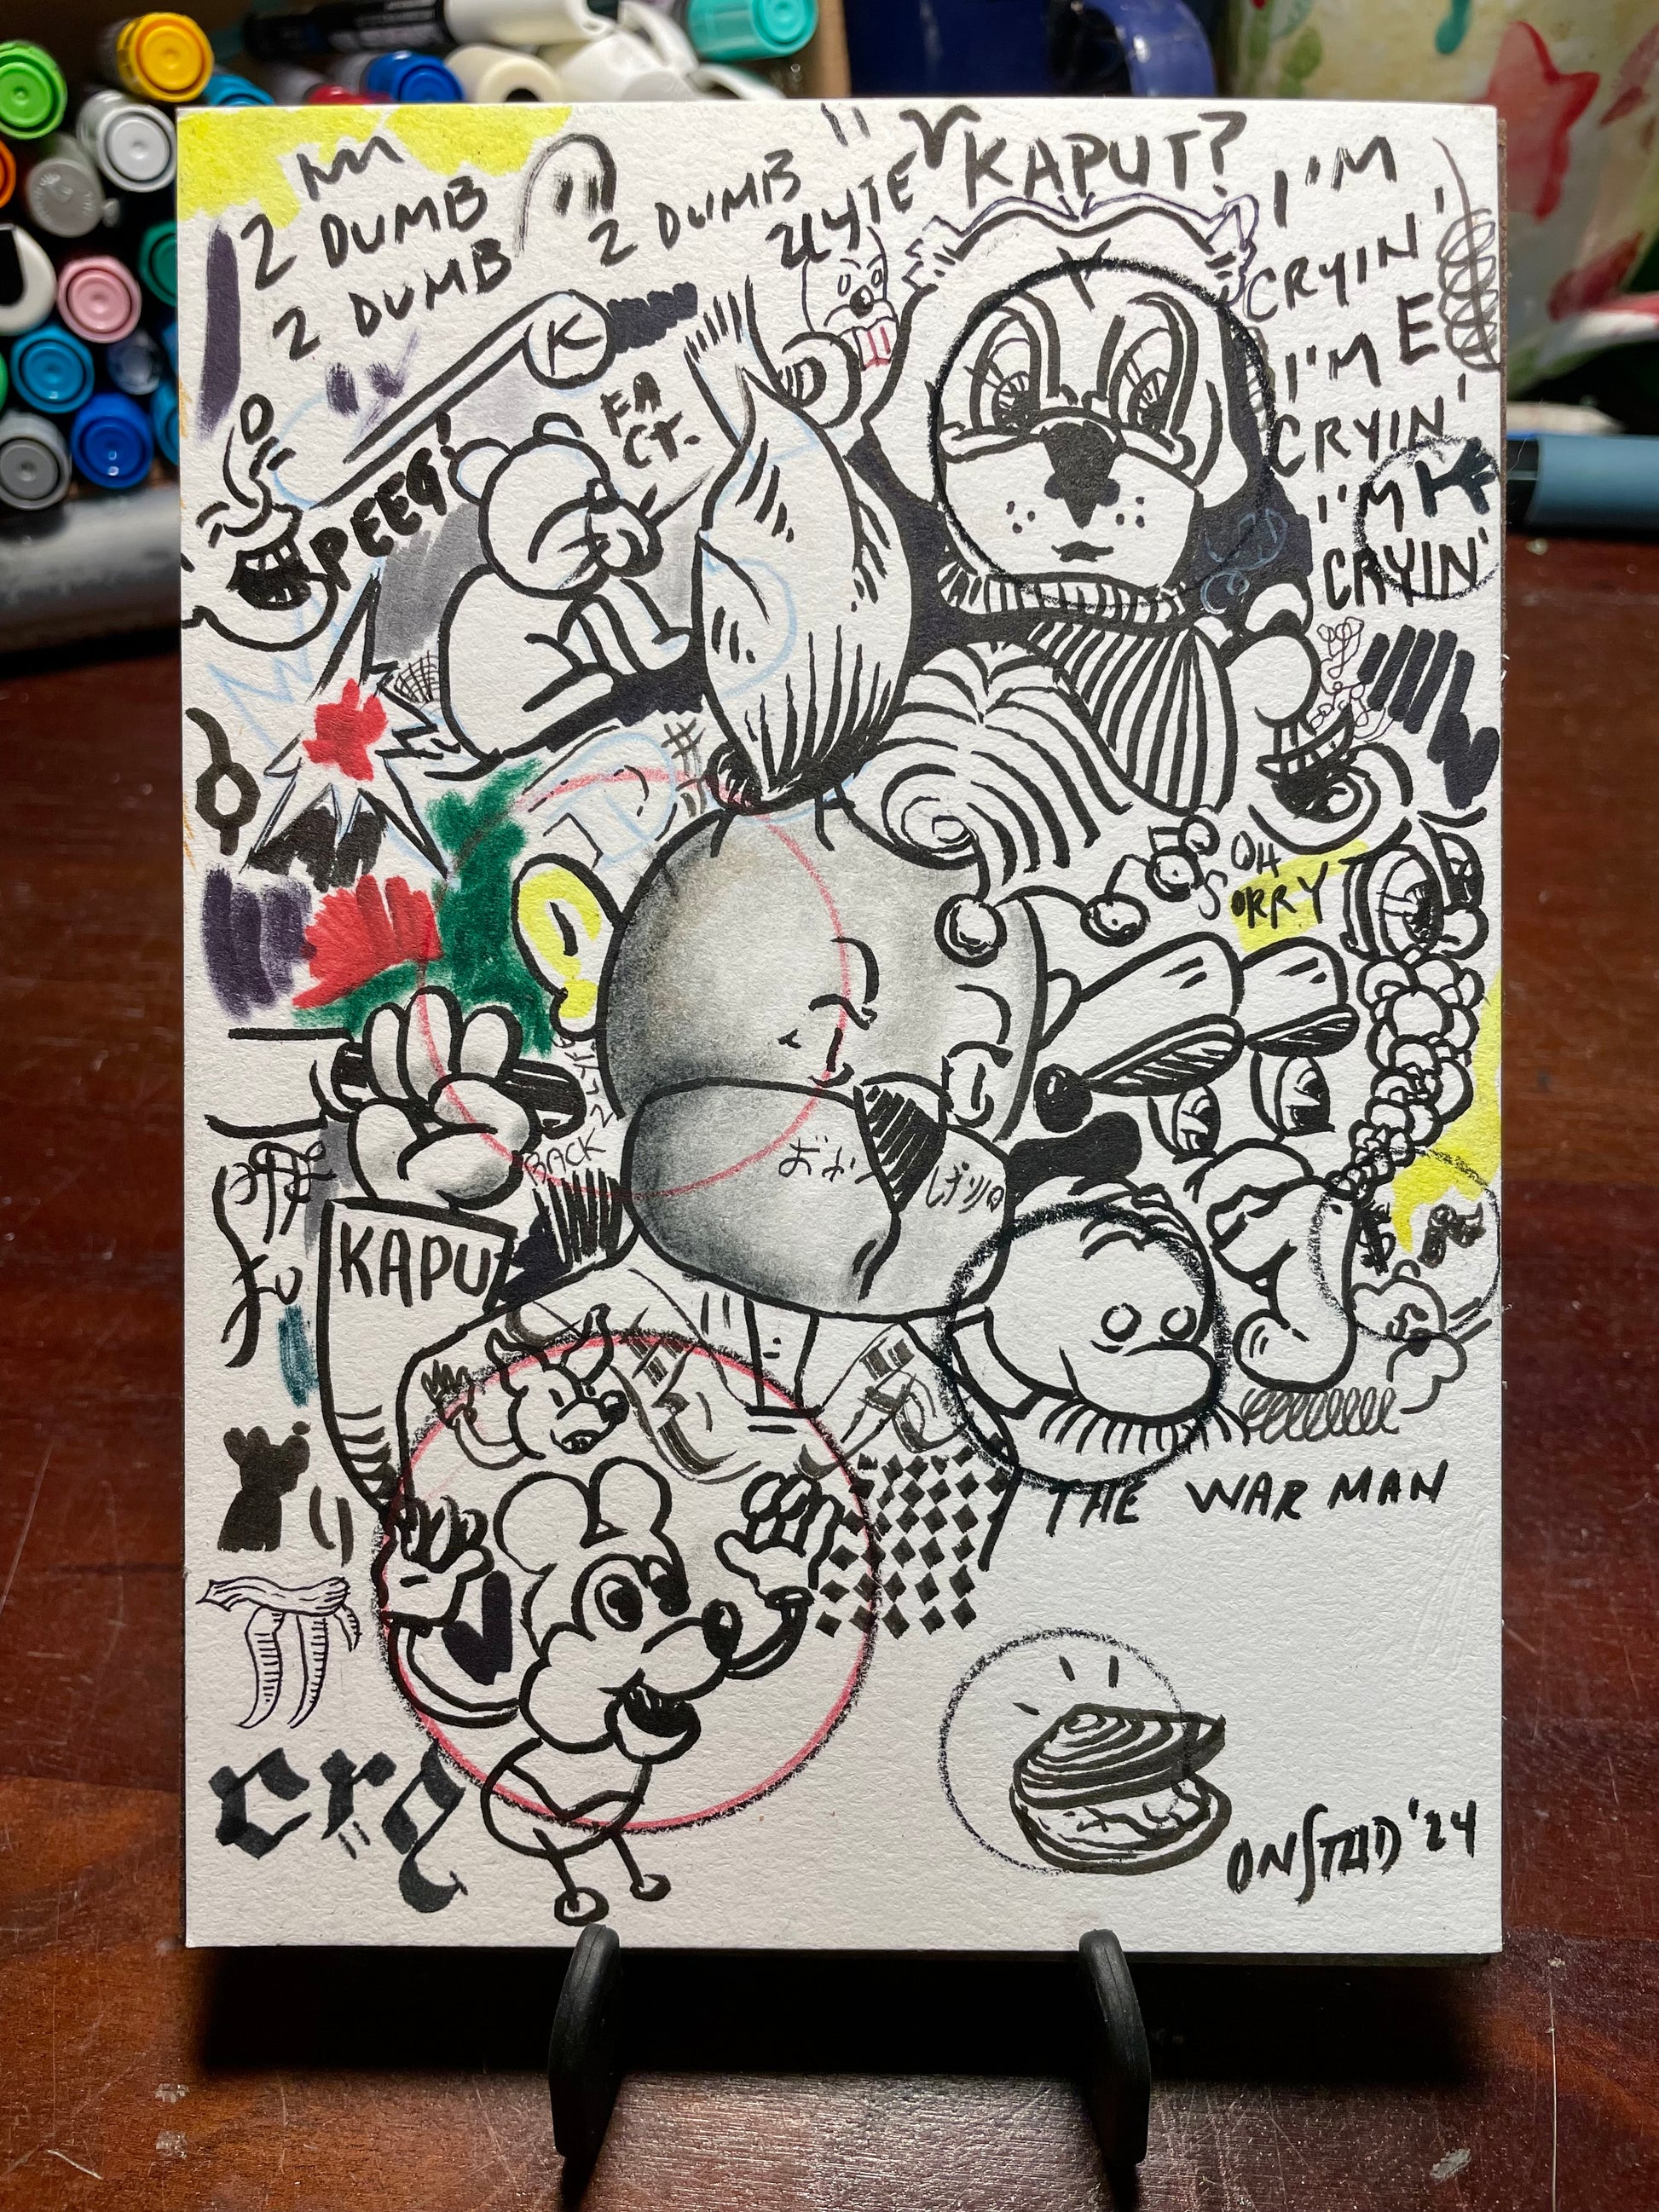 2 DUMB
2 DUMB
2 DUMB
KAPUT?
I'M
CRYIN'
I'M
CRYIN'
I'M
CRYIN'
E
K
FA
CT.
PEEG!
OH
SORRY
BACK 2
KAPU
$
THE WAR MAN
crg
ONSTAD '24